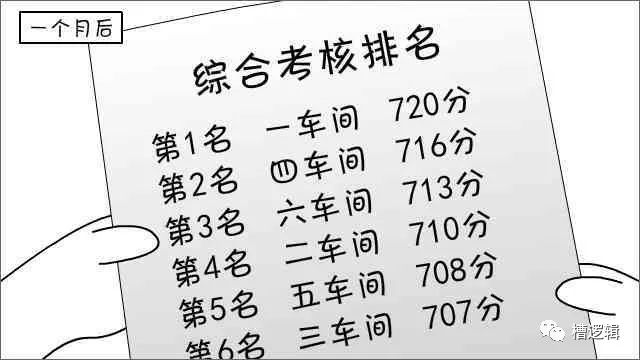 一个月后
综合考核排名
第1名 一车间 720分
第2名 四车间 716分
第3名 六车间 713分
第4名 二车间 710分
第5名 五车间 708分
第6名 三车间 707分
槽逻辑